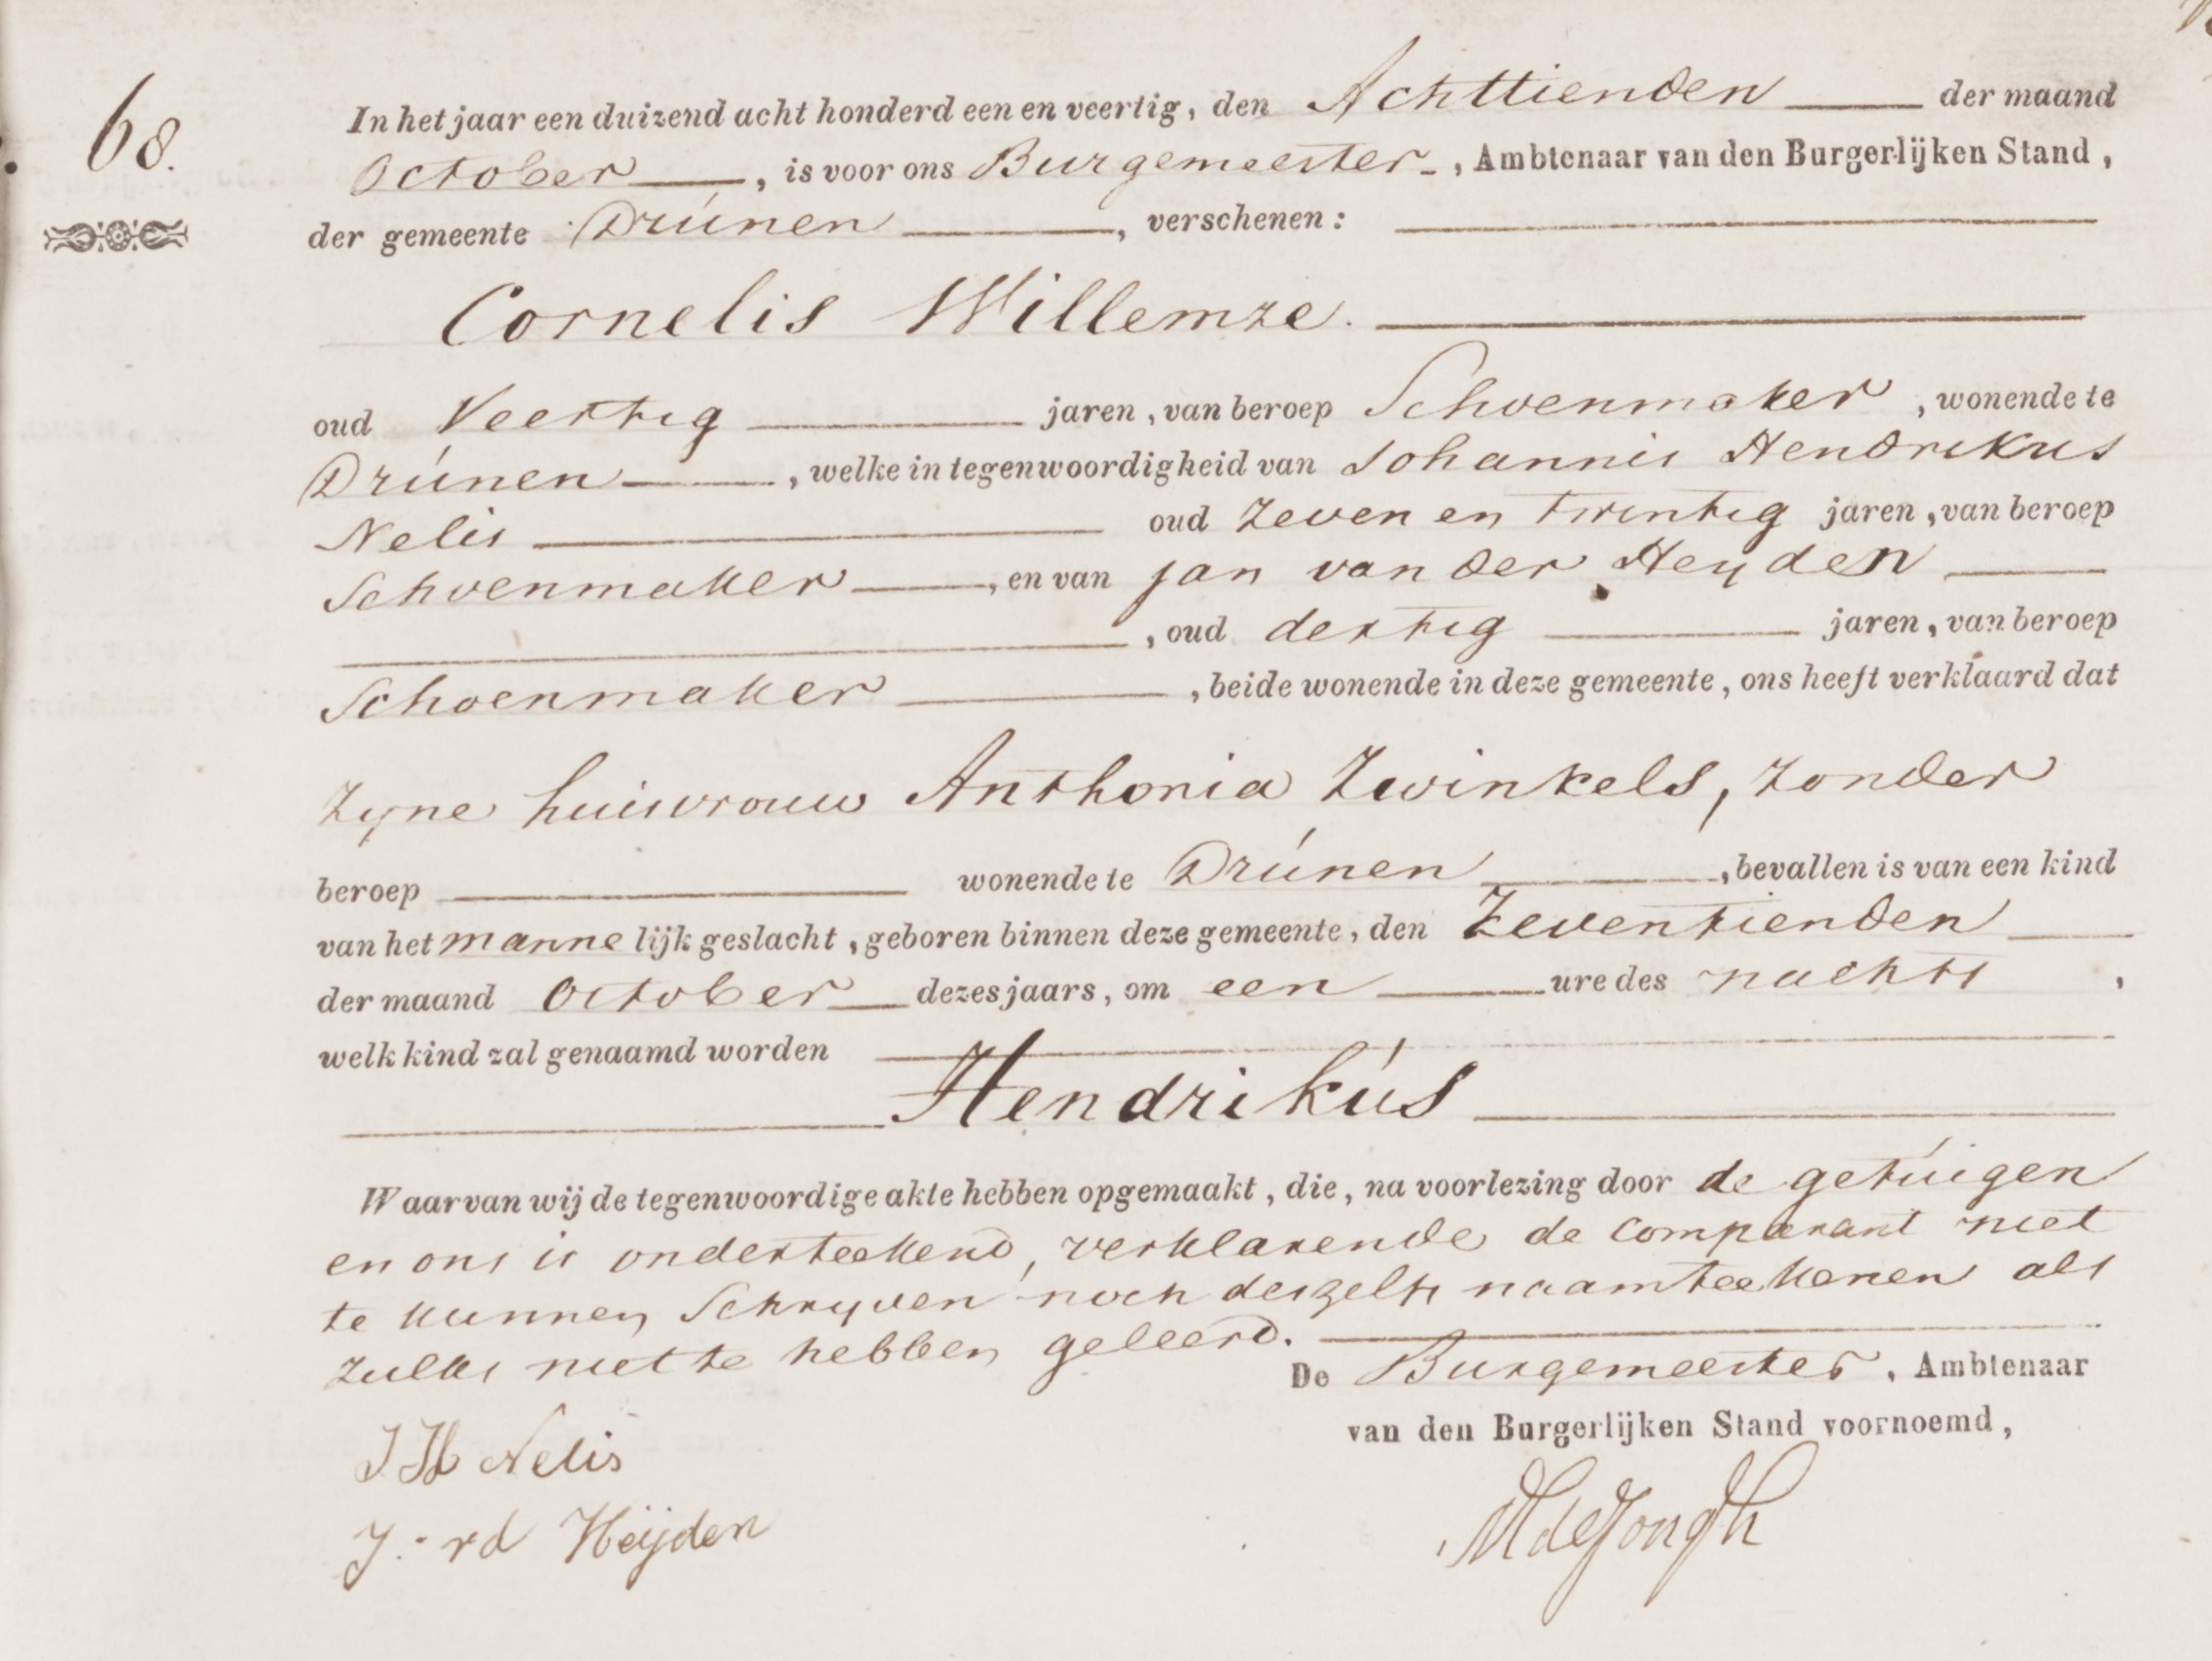 68.
In het jaar een duizend acht honderd een en veertig, den Achttienden der maand
October, is voor ons Burgemeester, Ambtenaar van den Burgerlijken Stand,
der gemeente Drúnen, verschenen:
Cornelis Willemze.
oud Veertig jaren, van beroep Schoenmaker, wonende te
Drúnen, welke in tegenwoordigheid van Johannis Hendrikus
Nelis oud Zeven en twintig jaren, van beroep
Schoenmaker, en van Jan van der Heyden
, oud dertig jaren, van beroep
Schoenmaker, beide wonende in deze gemeente, ons heeft verklaard dat
Zyne huisvrouw Anthonia Zwinkels, Zonder
beroep wonende te Drúnen, bevallen is van een kind
van het mannelijk geslacht, geboren binnen deze gemeente, den Zeventienden
der maand October dezes jaars, om een ure des nachts,
welk kind zal genaamd worden
Hendrikús
Waarvan wij de tegenwoordige akte hebben opgemaakt, die, na voorlezing door de getúigen
en ons is onderteekend, verklarende de Comparant niet
te kunnen Schryven noch deszelfs naamteekenen als
zulks niet te hebben geleerd.
De Burgemeester, Ambtenaar
van den Burgerlijken Stand voornoemd,
J H Nelis
J. vd Heijden
MdeJongh